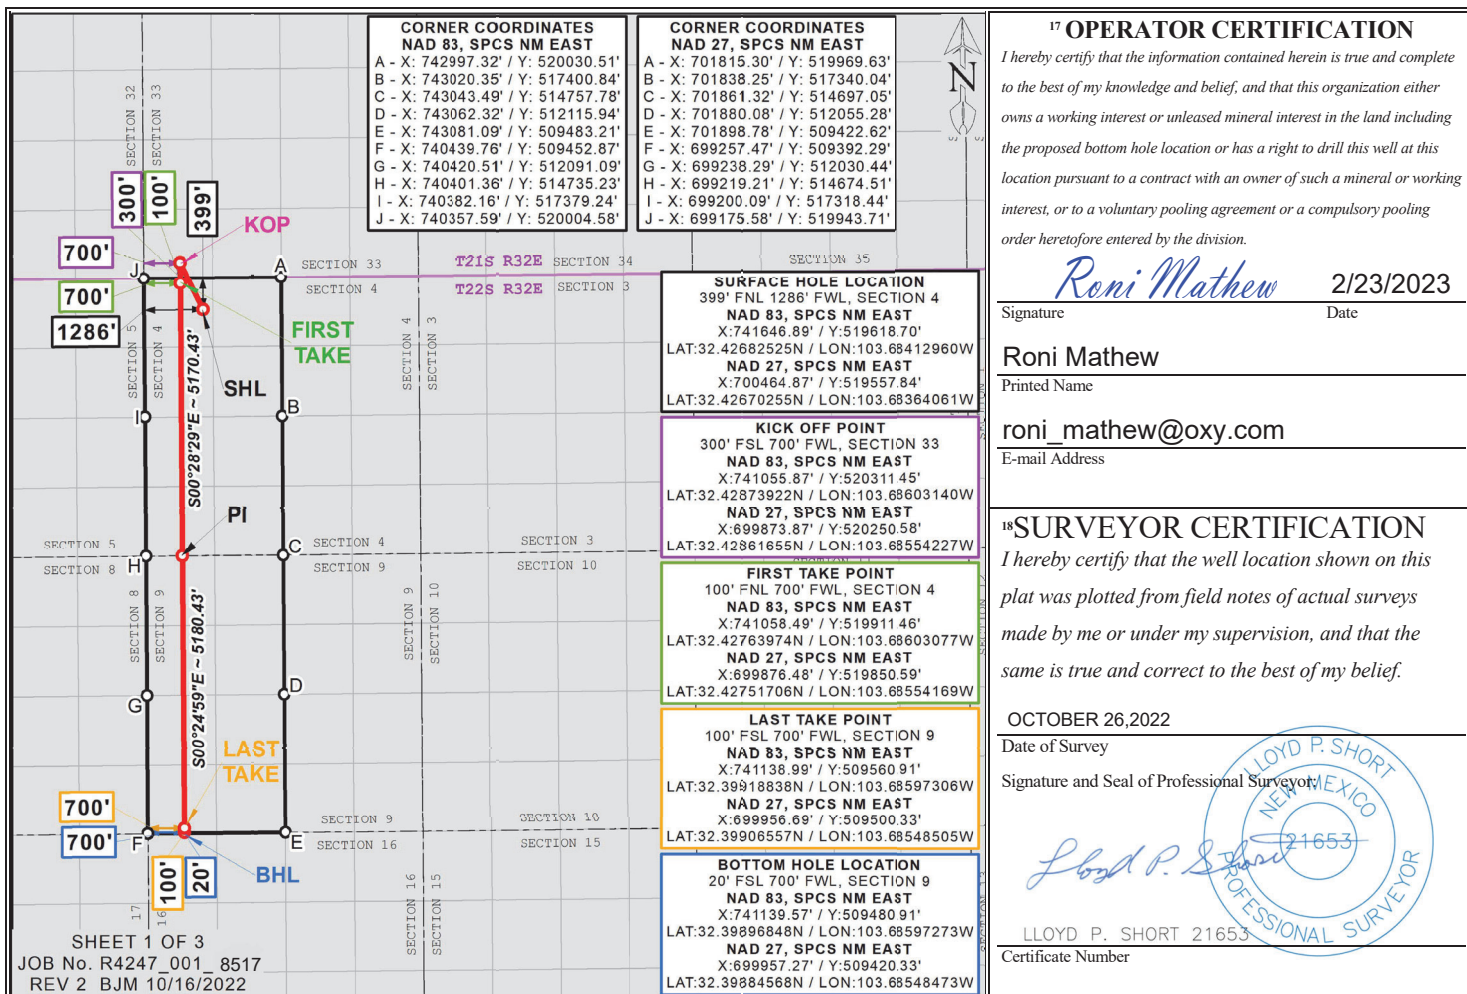 CORNER COORDINATES
NAD 83, SPCS NM EAST
A - X: 742997.32' / Y: 520030.51'
B - X: 743020.35' / Y: 517400.84'
C - X: 743043.49' / Y: 514757.78'
D - X: 743062.32' / Y: 512115.94'
E - X: 743081.09' / Y: 509483.21'
F - X: 740439.76' / Y: 509452.87'
G - X: 740420.51' / Y: 512091.09'
H - X: 740401.36' / Y: 514735.23'
I - X: 740382.16' / Y: 517379.24'
J - X: 740357.59' / Y: 520004.58'
CORNER COORDINATES
NAD 27, SPCS NM EAST
A - X: 701815.30' / Y: 519969.63'
B - X: 701838.25' / Y: 517340.04'
C - X: 701861.32' / Y: 514697.05'
D - X: 701880.08' / Y: 512055.28'
E - X: 701898.78' / Y: 509422.62'
F - X: 699257.47' / Y: 509392.29'
G - X: 699238.29' / Y: 512030.44'
H - X: 699219.21' / Y: 514674.51'
I - X: 699200.09' / Y: 517318.44'
J - X: 699175.58' / Y: 519943.71'
N
SECTION 32
SECTION 33
300'
100'
399'
KOP
700'
J
A
SECTION 33
T21S R32E
SECTION 34
SECTION 35
700'
SECTION 4
T22S R32E
SECTION 3
1286'
FIRST
TAKE
SECTION 5
SECTION 4
SECTION 4
SECTION 3
SHL
S00°28'29"E ~ 5170.43'
I
B
PI
SECTION 5
SECTION 4
SECTION 3
H
C
SECTION 8
SECTION 9
SECTION 10
SECTION 8
SECTION 9
SECTION 9
SECTION 10
S00°24'59"E ~ 5180.43'
G
D
LAST
TAKE
700'
SECTION 9
SECTION 10
700'
F
E
SECTION 16
SECTION 15
100'
20'
BHL
17
16
SECTION 16
SECTION 15
SHEET 1 OF 3
JOB No. R4247_001_ 8517
REV 2 BJM 10/16/2022
SURFACE HOLE LOCATION
399' FNL 1286' FWL, SECTION 4
NAD 83, SPCS NM EAST
X:741646.89' / Y:519618.70'
LAT:32.42682525N / LON:103.68412960W
NAD 27, SPCS NM EAST
X:700464.87' / Y:519557.84'
LAT:32.42670255N / LON:103.68364061W
KICK OFF POINT
300' FSL 700' FWL, SECTION 33
NAD 83, SPCS NM EAST
X:741055.87' / Y:520311.45'
LAT:32.42873922N / LON:103.68603140W
NAD 27, SPCS NM EAST
X:699873.87' / Y:520250.58'
LAT:32.42861655N / LON:103.68554227W
FIRST TAKE POINT
100' FNL 700' FWL, SECTION 4
NAD 83, SPCS NM EAST
X:741058.49' / Y:519911.46'
LAT:32.42763974N / LON:103.68603077W
NAD 27, SPCS NM EAST
X:699876.48' / Y:519850.59'
LAT:32.42751706N / LON:103.68554169W
LAST TAKE POINT
100' FSL 700' FWL, SECTION 9
NAD 83, SPCS NM EAST
X:741138.99' / Y:509560.91'
LAT:32.39918838N / LON:103.68597306W
NAD 27, SPCS NM EAST
X:699956.69' / Y:509500.33'
LAT:32.39906557N / LON:103.68548505W
BOTTOM HOLE LOCATION
20' FSL 700' FWL, SECTION 9
NAD 83, SPCS NM EAST
X:741139.57' / Y:509480.91'
LAT:32.39896848N / LON:103.68597273W
NAD 27, SPCS NM EAST
X:699957.27' / Y:509420.33'
LAT:32.39884568N / LON:103.68548473W
17 OPERATOR CERTIFICATION
I hereby certify that the information contained herein is true and complete
to the best of my knowledge and belief, and that this organization either
owns a working interest or unleased mineral interest in the land including
the proposed bottom hole location or has a right to drill this well at this
location pursuant to a contract with an owner of such a mineral or working
interest, or to a voluntary pooling agreement or a compulsory pooling
order heretofore entered by the division.
Roni Mathew 2/23/2023
Signature Date
Roni Mathew
Printed Name
roni_mathew@oxy.com
E-mail Address
18 SURVEYOR CERTIFICATION
I hereby certify that the well location shown on this
plat was plotted from field notes of actual surveys
made by me or under my supervision, and that the
same is true and correct to the best of my belief.
OCTOBER 26,2022
Date of Survey
Signature and Seal of Professional Surveyor:
LLOYD P. SHORT
NEW MEXICO
21653
PROFESSIONAL SURVEYOR
Lloyd P. Short
LLOYD P. SHORT 21653
Certificate Number